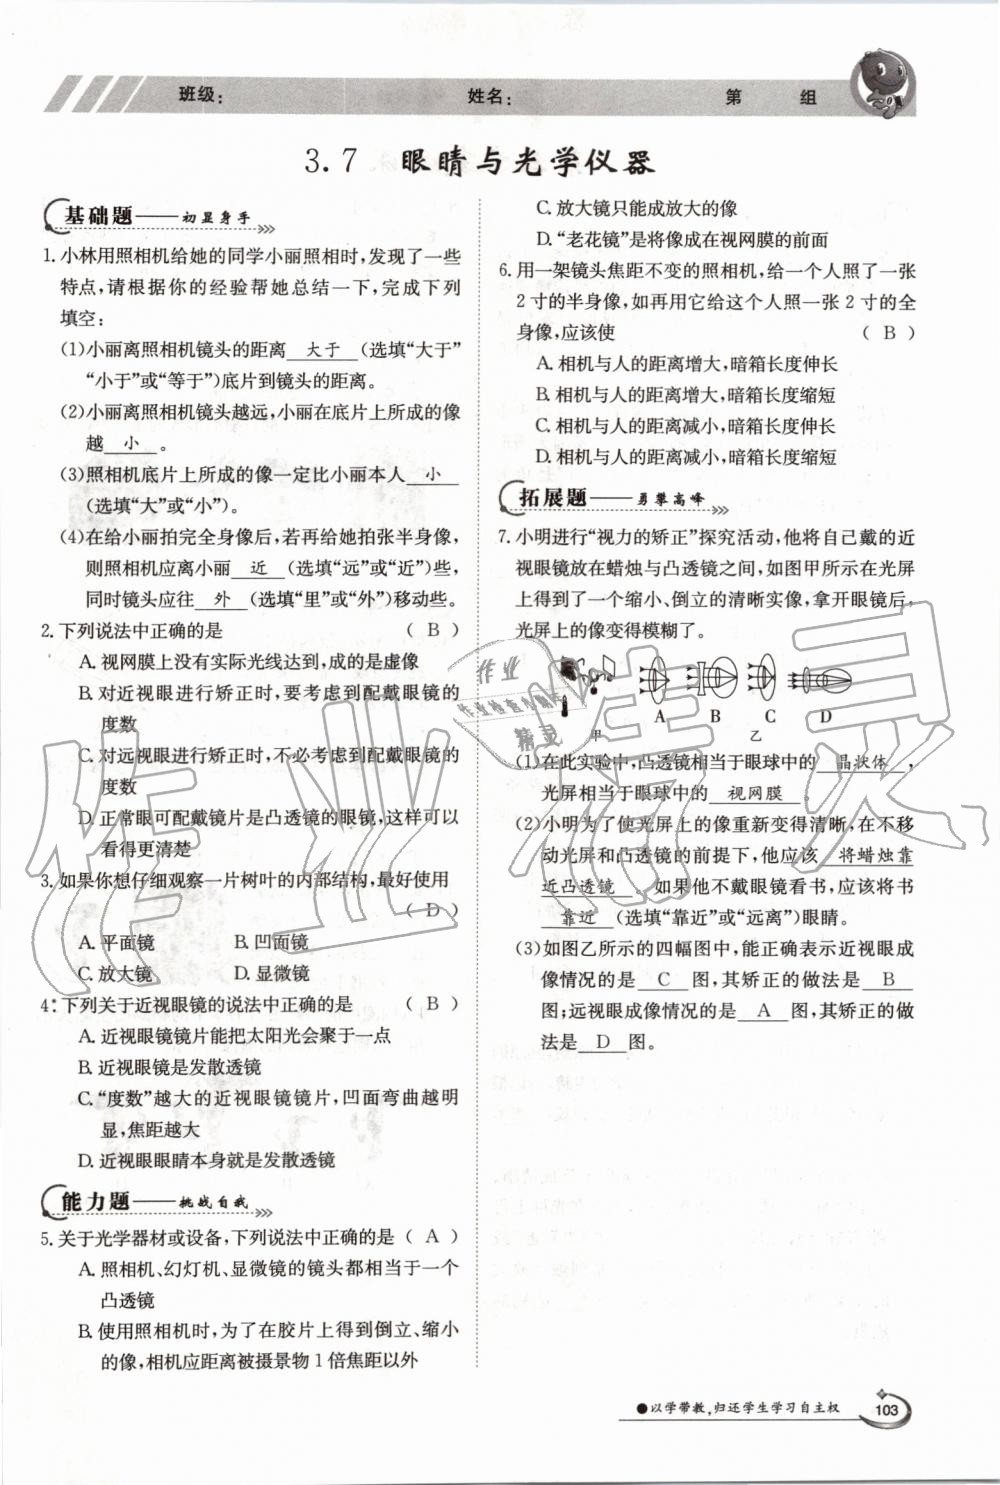 班级：　姓名：　第　组
3.7　眼睛与光学仪器
基础题——初显身手
1.小林用照相机给她的同学小丽照相时,发现了一些
特点,请根据你的经验帮她总结一下,完成下列
填空:
(1)小丽离照相机镜头的距离 大于 (选填“大于”
“小于”或“等于”)底片到镜头的距离。
(2)小丽离照相机镜头越远,小丽在底片上所成的像
越 小 。
(3)照相机底片上所成的像一定比小丽本人 小
(选填“大”或“小”)。
(4)在给小丽拍完全身像后,若再给她拍张半身像,
则照相机应离小丽 近 (选填“远”或“近”)些,
同时镜头应往 外 (选填“里”或“外”)移动些。
2.下列说法中正确的是 ( B )
A.视网膜上没有实际光线达到,成的是虚像
B.对近视眼进行矫正时,要考虑到配戴眼镜的
度数
C.对远视眼进行矫正时,不必考虑到配戴眼镜的
度数
D.正常眼可配戴镜片是凸透镜的眼镜,这样可以
看得更清楚
3.如果你想仔细观察一片树叶的内部结构,最好使用
( D )
A.平面镜 B.凹面镜
C.放大镜 D.显微镜
4.下列关于近视眼镜的说法中正确的是 ( B )
A.近视眼镜镜片能把太阳光会聚于一点
B.近视眼镜是发散透镜
C.“度数”越大的近视眼镜镜片,凹面弯曲越明
显,焦距越大
D.近视眼眼睛本身就是发散透镜
能力题——挑战自我
5.关于光学器材或设备,下列说法中正确的是 ( A )
A.照相机、幻灯机、显微镜的镜头都相当于一个
凸透镜
B.使用照相机时,为了在胶片上得到倒立、缩小
的像,相机应距离被摄景物1倍焦距以外
C.放大镜只能成放大的像
D.“老花镜”是将像成在视网膜的前面
6.用一架镜头焦距不变的照相机,给一个人照了一张
2寸的半身像,如再用它给这个人照一张2寸的全
身像,应该使 ( B )
A.相机与人的距离增大,暗箱长度伸长
B.相机与人的距离增大,暗箱长度缩短
C.相机与人的距离减小,暗箱长度伸长
D.相机与人的距离减小,暗箱长度缩短
拓展题——勇攀高峰
7.小明进行“视力的矫正”探究活动,他将自己戴的近
视眼镜放在蜡烛与凸透镜之间,如图甲所示在光屏
上得到了一个缩小、倒立的清晰实像,拿开眼镜后,
光屏上的像变得模糊了。
A B C D
甲 乙
(1)在此实验中,凸透镜相当于眼球中的 晶状体 ,
光屏相当于眼球中的 视网膜 。
(2)小明为了使光屏上的像重新变得清晰,在不移
动光屏和凸透镜的前提下,他应该 将蜡烛靠
近凸透镜 。如果他不戴眼镜看书,应该将书
靠近 (选填“靠近”或“远离”)眼睛。
(3)如图乙所示的四幅图中,能正确表示近视眼成
像情况的是 C 图,其矫正的做法是 B
图;远视眼成像情况的是 A 图,其矫正的做
法是 D 图。
●以学带教,归还学生学习自主权
103
作业精灵
作业
作业检查小助手
精灵